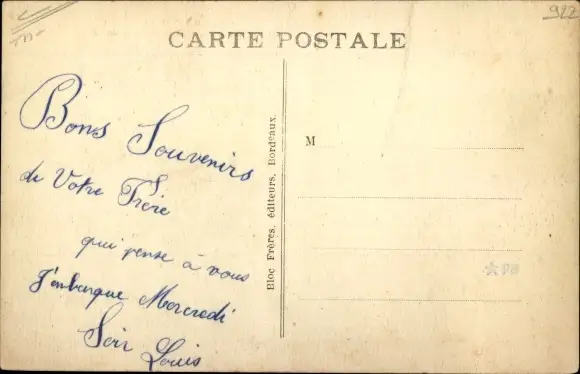 922
CARTE POSTALE
Bons Souvenirs
de Votre Frère
qui pense à vous
J'embarque Mercredi
Soir Louis
Bloc Frères, éditeurs, Bordeaux.
M